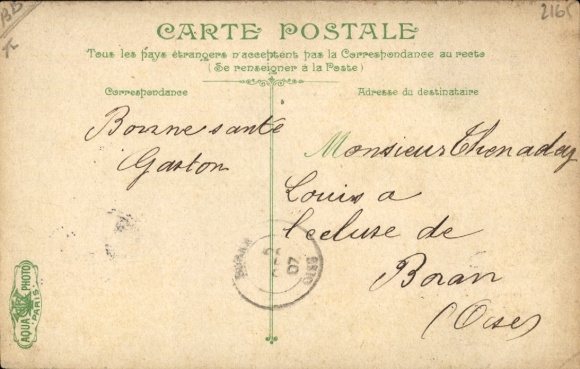 BB
2165
CARTE POSTALE
Tous les pays étrangers n'acceptent pas la Correspondance au recto
(Se renseigner à la Poste)
Correspondance
Adresse du destinataire
Bonne santé
Gaston
Monsieur Thenadey
Louis a
l'ecluse de
Boran
(Oise)
BORAN
07
OISE
AQUA PHOTO
PARIS